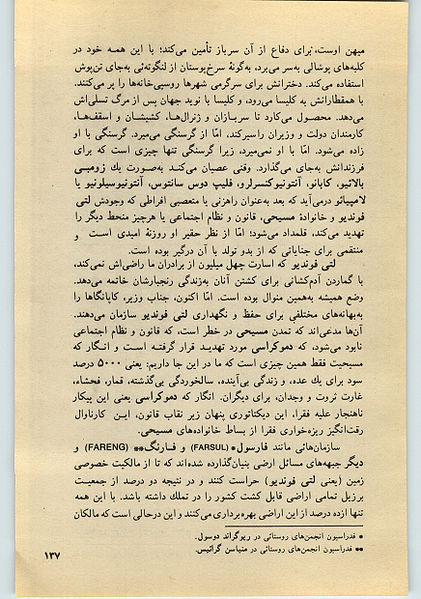 میهن اوست، برای دفاع از آن سرباز تأمین می‌کند؛ با این همه خود در
کلبه‌های پوشالی به‌سر می‌برد، به‌گونهٔ سرخ‌پوستان از لنگوته‌ئی به‌جای تن‌پوش
استفاده می‌کند. دخترانش برای سرگرمی شهرها روسپی‌خانه‌ها را پر می‌کنند.
با همقطارانش به کلیسا می‌رود، و کلیسا با نوید جهان پس از مرگ تسلی‌اش
می‌دهد. محصول می‌کارد تا سربازان و ژنرال‌ها، کشیشان و اسقف‌ها،
کارمندان دولت و وزیران راسیرکند، امّا از گرسنگی می‌میرد. گرسنگی با او
زاده می‌شود. امّا با او نمی‌میرد، زیرا گرسنگی تنها چیزی است که برای
فرزندانش به‌جای می‌گذارد. وقتی عصیان می‌کند به‌صورت یك زومبی
بالائیو، کابانو، آنتونیوکنسلرو، فلیپ دوس سانتوس، آنتونیوسیلونیو یا
لامپیائو درمی‌آید که بعد به‌عنوان راهزنی یا متعصبی افراطی که وجودش لتی
فوندیو و خانوادهٔ مسیحی، قانون و نظام اجتماعی یا هرچیز منحط دیگر را
تهدید می‌کند، قلمداد می‌شود؛ امّا از نظر حقیر او روزنهٔ امیدی است و
منتقمی برای جنایاتی که از بدو تولد با آن درگیر بوده است.
لتی فوندیو که اسارت چهل میلیون از برادران ما راضی‌اش نمی‌کند،
با گماردن آدم‌کشانی برای کشتن آنان به‌زندگی رنجبارشان خاتمه می‌دهد.
وضع همیشه به‌همین منوال بوده است. امّا اکنون، جناب وزیر، کاپانگاها را
به‌بهانه‌های مختلفی برای حفظ و نگهداری لتی فوندیو سازمان می‌دهند.
آن‌ها مدعی‌اند که تمدن مسیحی در خطر است، که قانون و نظام اجتماعی
نابود می‌شود، که دموکراسی مورد تهدید قرار گرفته است و انگار که
مسیحیت فقط همین چیزی است که ما در این جا داریم: یعنی ۵۰۰۰ درصد
سود برای یك عده، و زندگی بی‌آینده، سالخوردگی بی‌گذشته، قمار، فحشاء،
غارت ثروت و وجدان، برای دیگران. انگار که دموکراسی یعنی این پیکار
ناهنجار علیه فقرا، این دیکتاتوری پنهان زیر نقاب قانون، این کارناوال
رقت‌انگیز ریزه‌خواری فقرا از بساط خانواده‌های مسیحی.
سازمان‌هائی مانند فارسول* (FARSUL) و فارنگ** (FARENG) و
دیگر جبهه‌های مسائل ارضی بنیان‌گذارده شده‌اند که تا از مالکیت خصوصی
زمین (یعنی لتی فوندیو) حراست کنند و در نتیجه دو درصد از جمعیت
برزیل تمامی اراضی قابل کشت کشور را در تملك داشته باشد. با این همه
تنها ازده درصد از این اراضی بهره‌برداری می‌کنند و این درحالی است که مالکان
* فدراسیون انجمن‌های روستائی در ریوگراند دوسول.
** فدراسیون انجمن‌های روستائی در میناسن گرائیس.
۱۳۷